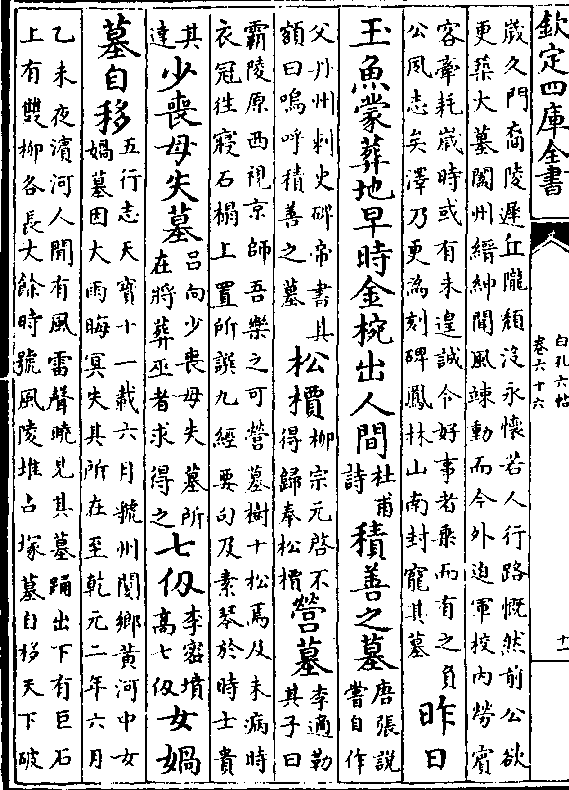 欽定四庫全書
白孔六帖
卷六十六
十一
歲久門裔陵遲丘隴頹沒永懷若人行路慨然前公欲
更築大墓闔州縉紳聞風竦動而今外迫軍校內勞賓
客牽耗歲時或有未遑誠令好事者乘而有之負
公夙志矣澤乃更為刻碑鳳林山南封寵其墓
昨日
玉魚蒙葬地早時金椀出人間
杜甫
詩
積善之墓
唐張說
嘗自作
父丹州刺史碑帝書其
額曰嗚呼積善之墓
松檟
柳宗元啓不
得歸奉松檟
營墓
李適勒
其子曰
霸陵原西視京師吾樂之可營墓樹十松焉及未病時
衣冠往寢石榻上置所譔九經要句及素琴於時士貴
其
達
少喪母失墓
呂向少喪母失墓所
在將葬巫者求得之
七仭
李密墳
高七仭
女媧
墓自移
五行志天寶十一載六月虢州閿鄉黃河中女
媧墓因大雨晦冥失其所在至乾元二年六月
乙未夜瀕河人聞有風雷聲曉見其墓踴出下有巨石
上有雙柳各長丈餘時號風陵堆占塚墓自移天下破